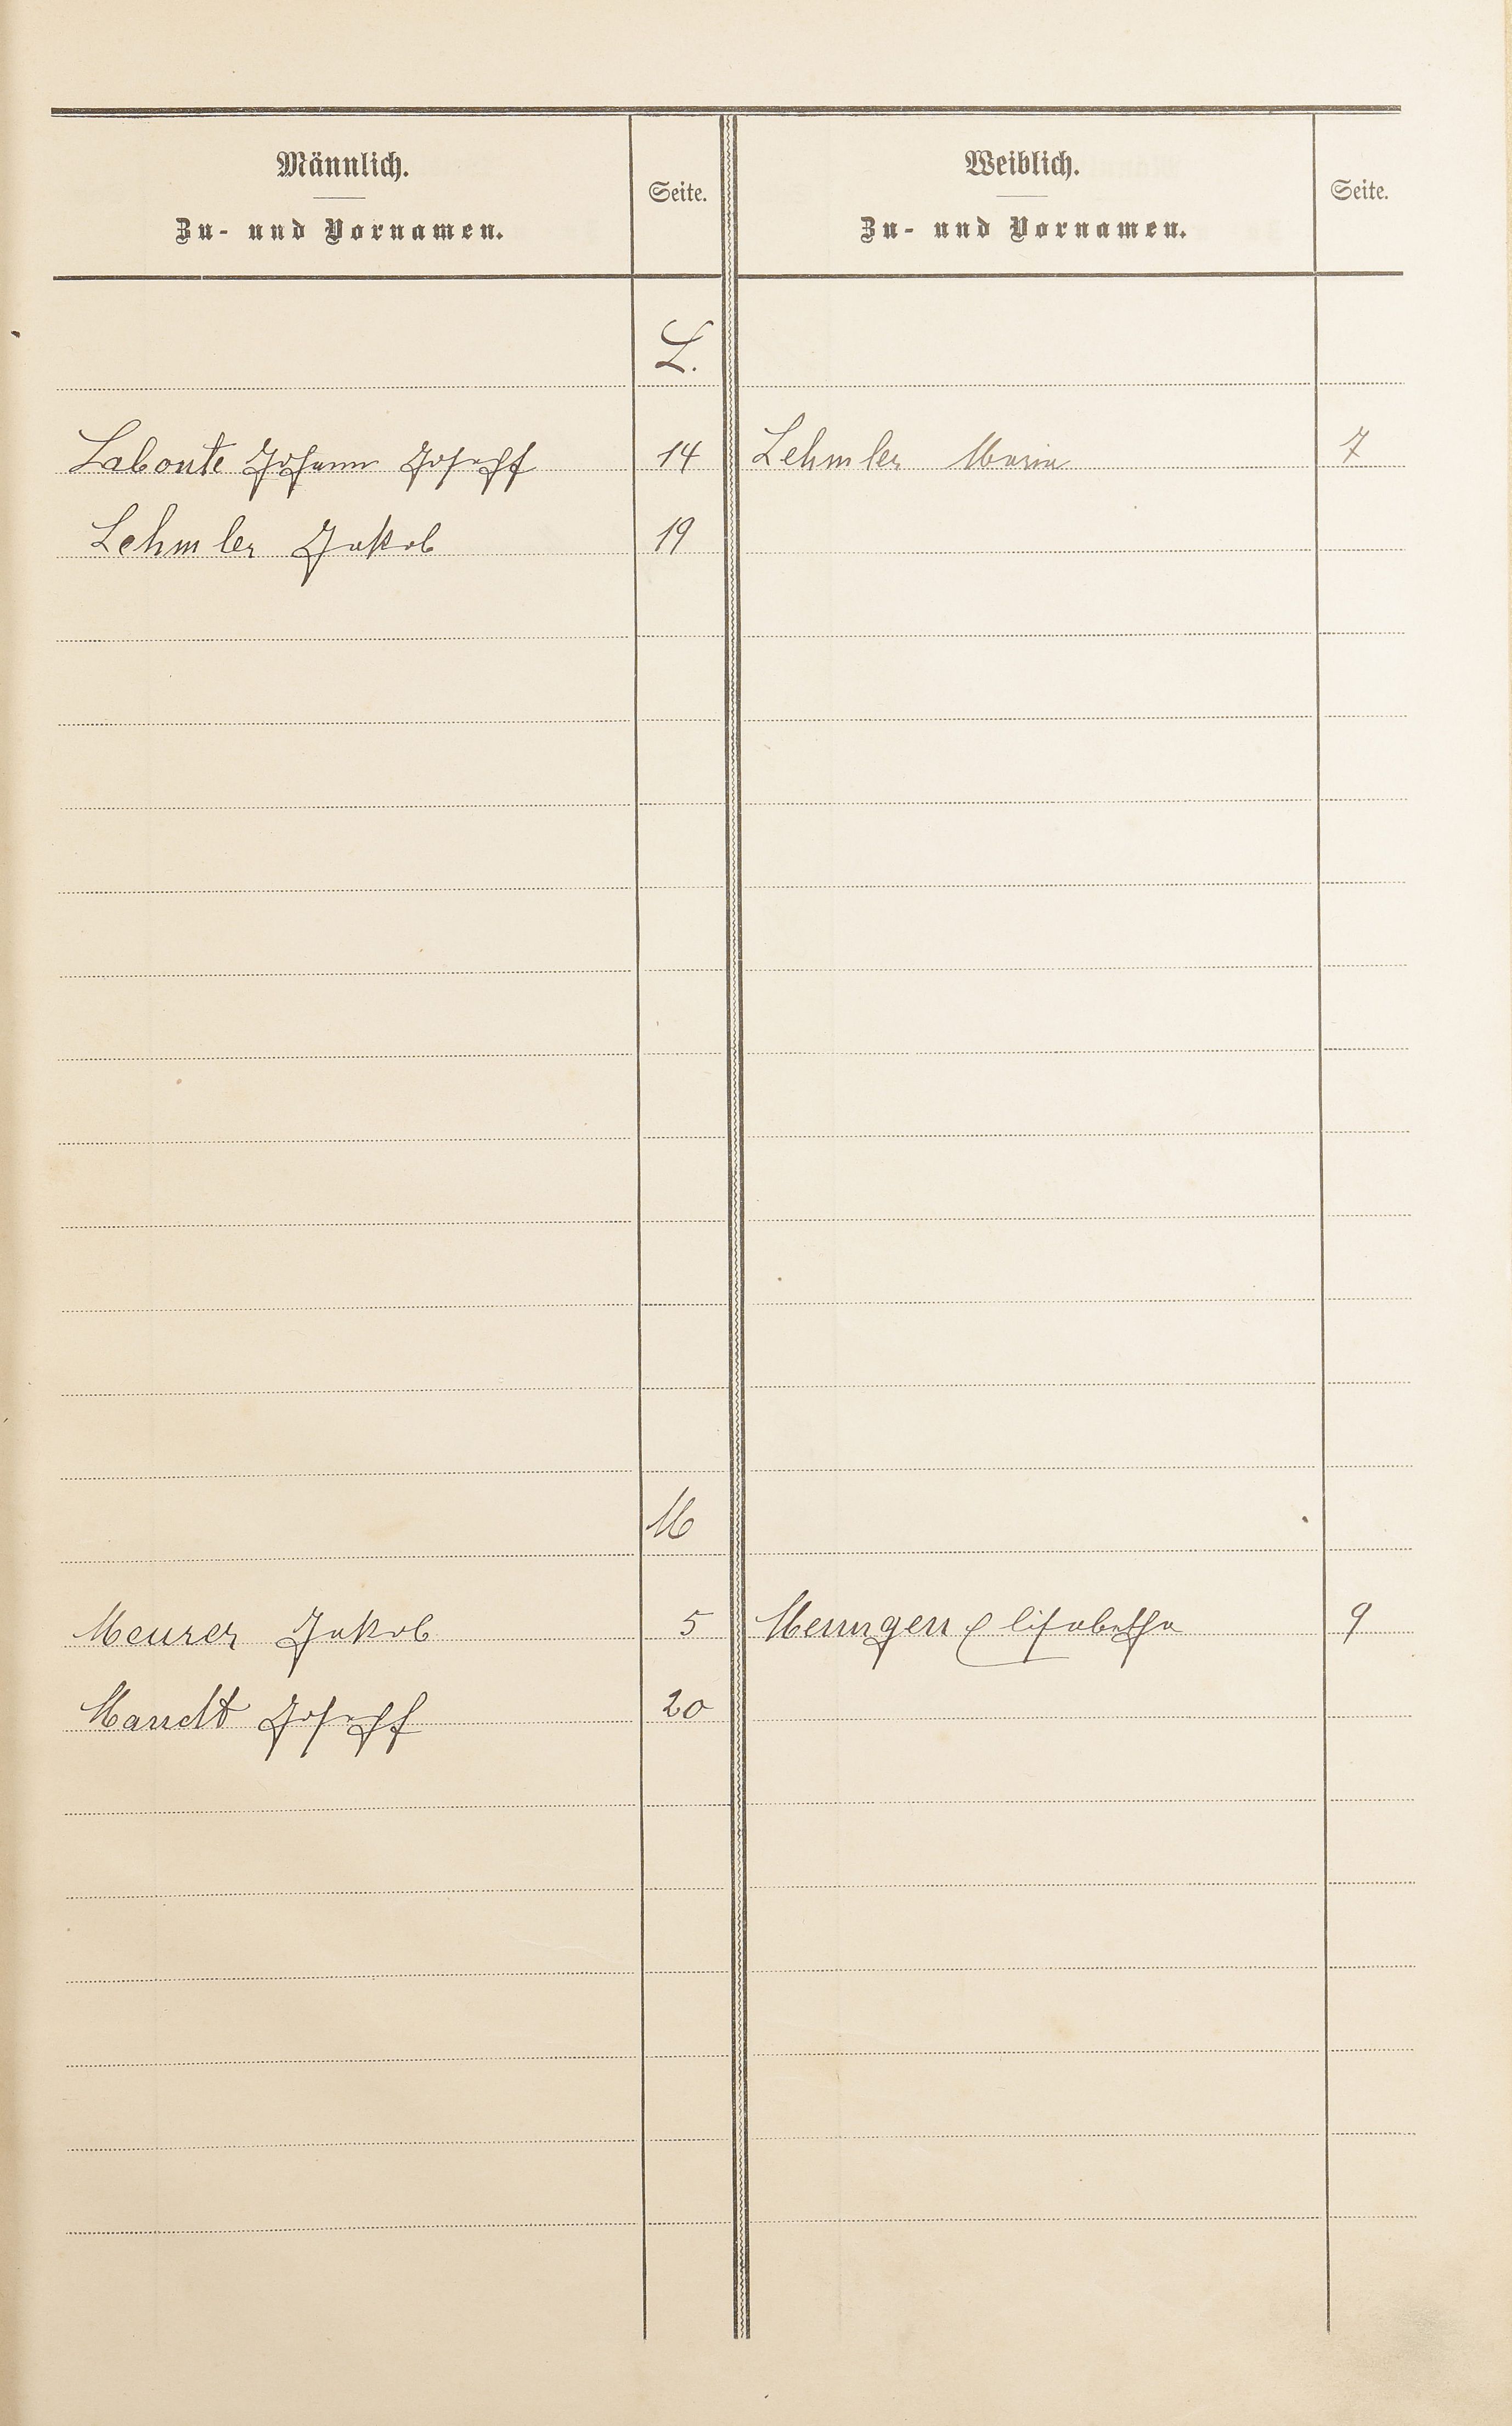 Männlich.
Zu- und Vornamen.
Seite.
Weiblich.
Zu- und Vornamen.
Seite.
L.
Labonte Johann Joseff 14 Lehmler Maria 7
Lehmler Jakob 19
M
Meurer Jakob 5 Menngen Elisabetha 9
Mandt Joseff 20